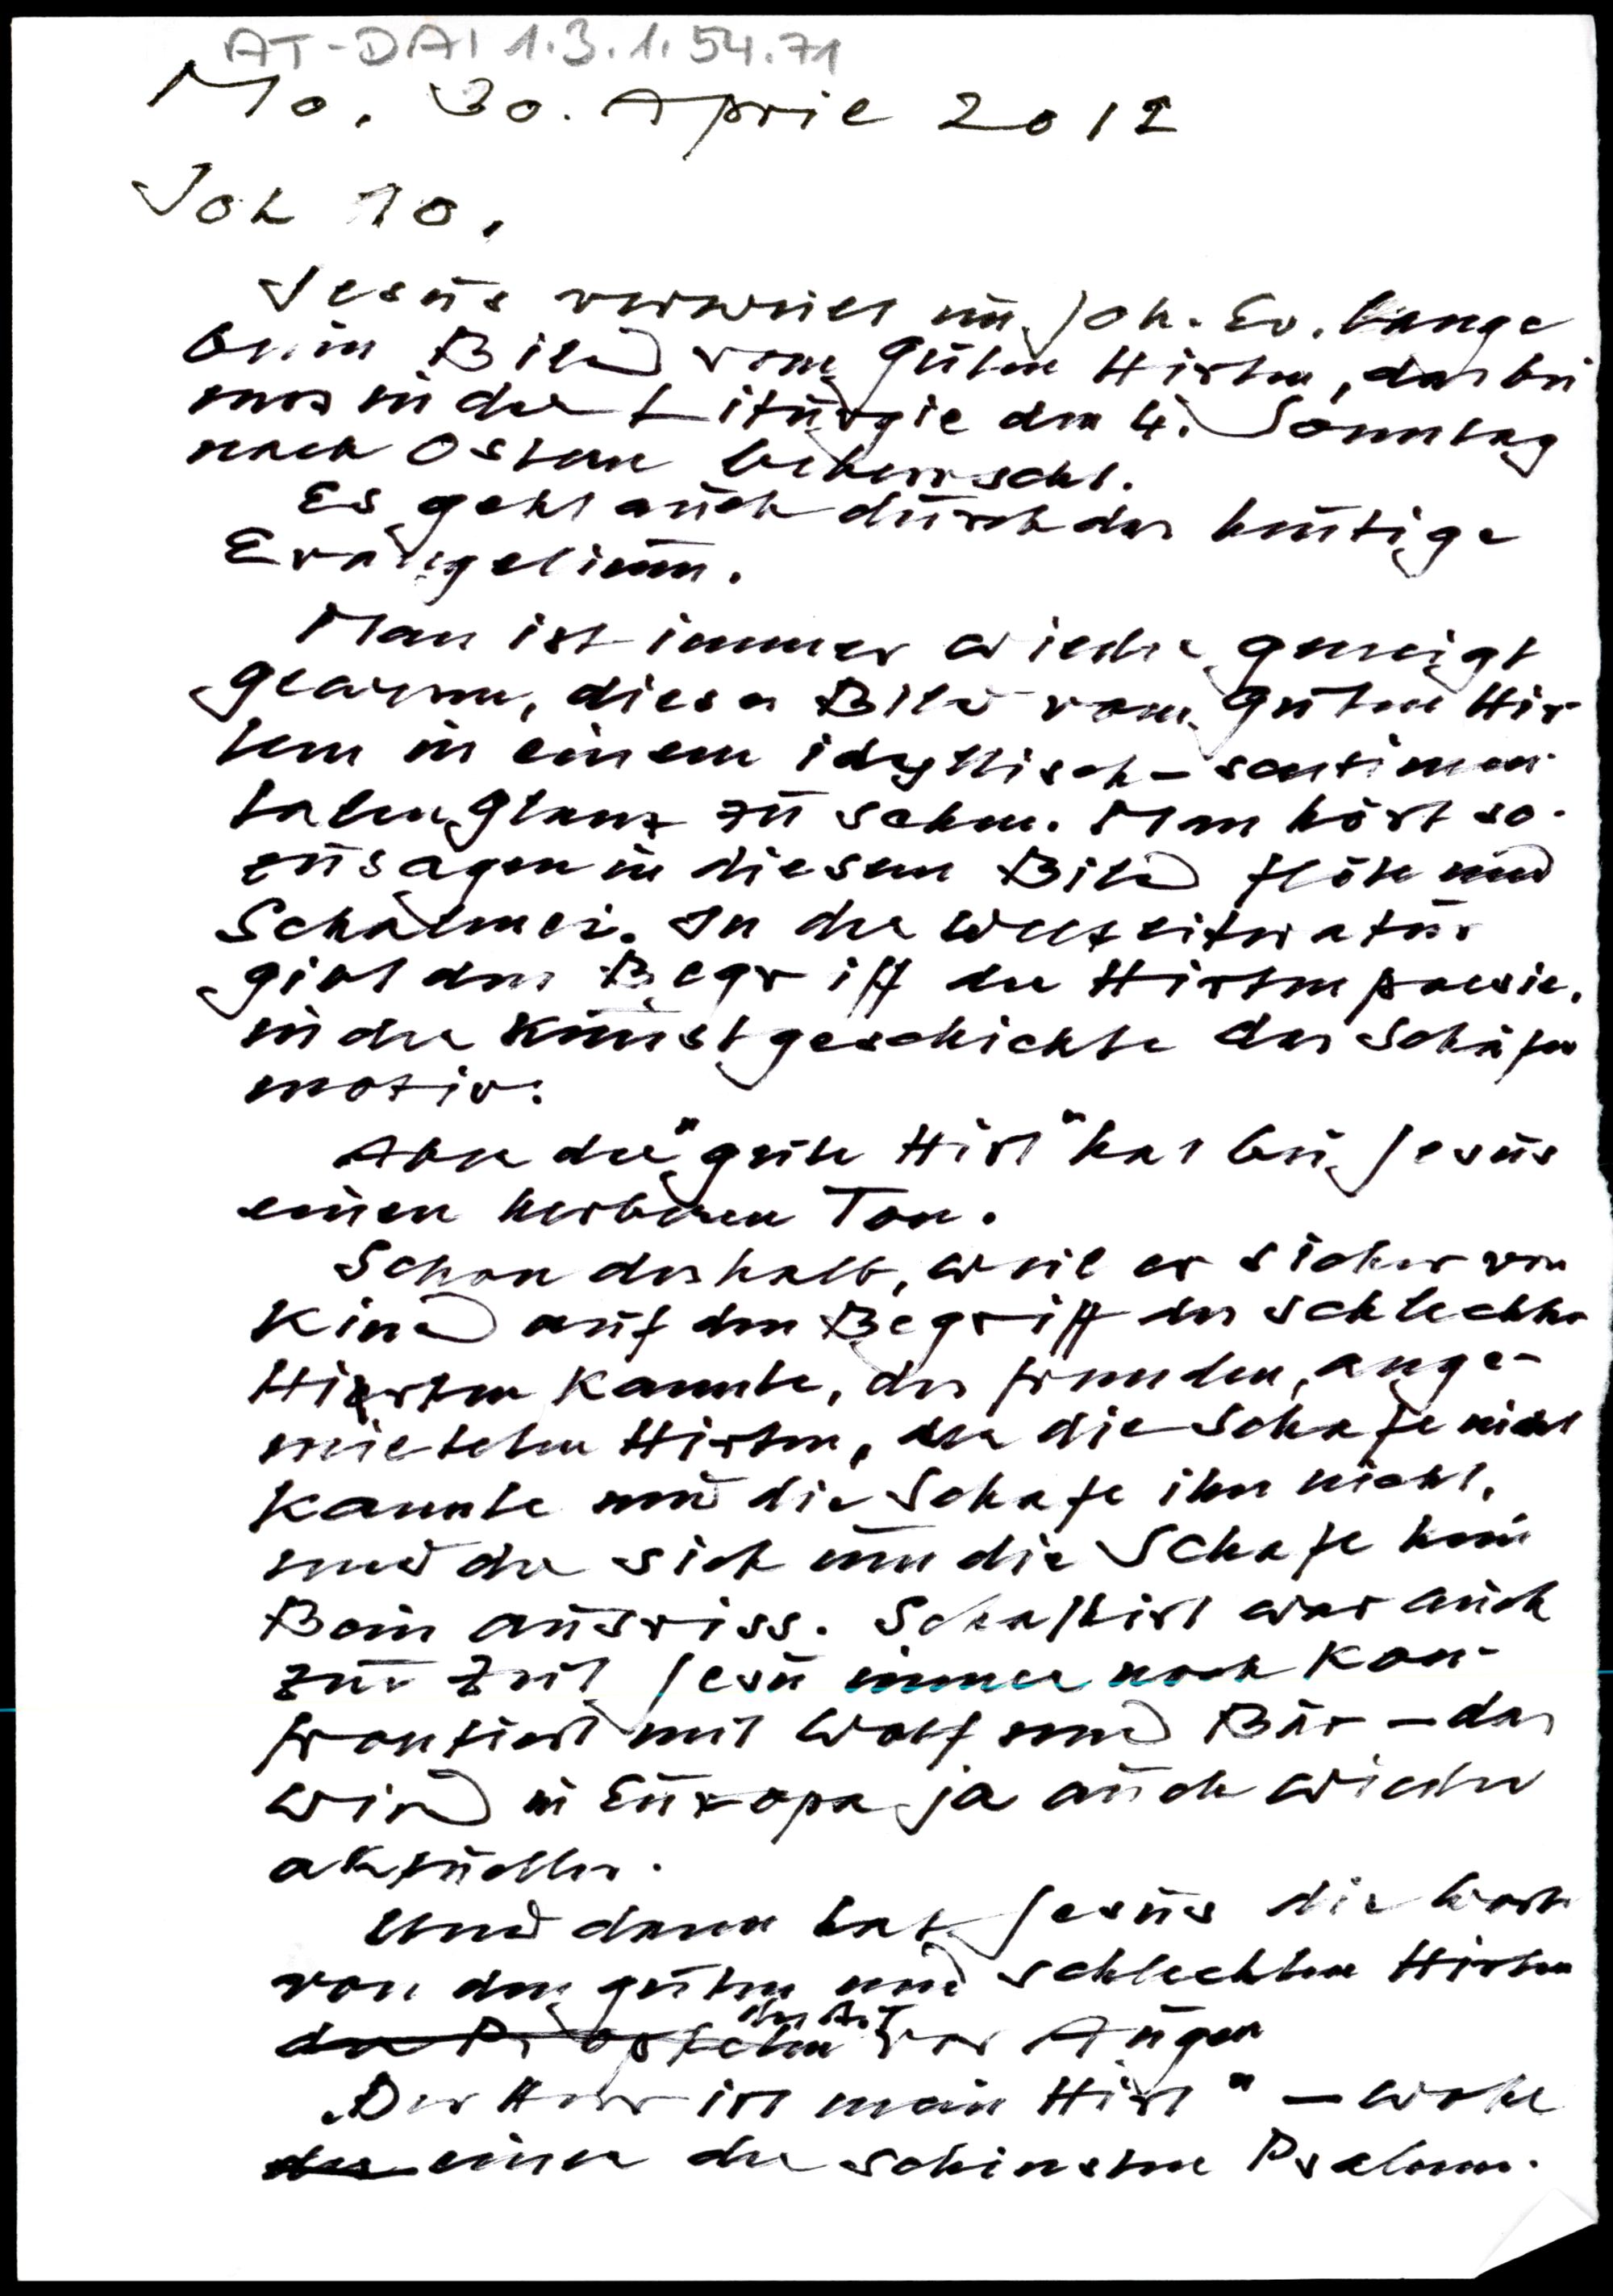 AT-DAI 1.3.1.54.71
Mo, 30. April 2012
Joh 10,
Jesus verweilt im Joh. Ev. lange
beim Bild vom guten Hirten, das bei
uns in der Liturgie den 4. Sonntag
nach Ostern beherrscht.
Es geht auch durch das heutige
Evangelium.
Man ist immer wieder geneigt
, dieses Bild vom guten Hir-
ten in einem idyllisch-sentimen-
talen Glanz zu sehen. Man hört so-
zusagen in diesem Bild Flöte und
Schalmei. In der Weltliteratur
gibt den Begriff der Hirtenpoesie,
in der Kunstgeschichte das Schäfer
motiv.
Aber der "gute Hirt" hat bei Jesus
einen herberen Ton.
Schon deshalb, weil er sicher von
Kind auf den Begriff des schlechten
Hirten kannte, des fremden, ange-
mieteten Hirten, der die Schafe nicht
kannte und die Schafe ihn nicht,
und der sich um die Schafe kein
Bein ausriss. Schafhirt war auch
zur Zeit Jesu immer noch kon-
frontiert mit Wolf und Bär – das
wird in Europa ja auch wieder
aktueller.
Und dann hat Jesus die Worte
von den guten und schlechten Hirten
der Propheten des A.T. vor Augen
„Der Herr ist mein Hirt" – wohl
der einer der schönsten Psalmen.